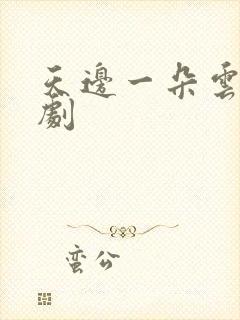 天邊一朵雲
劇
蛮公